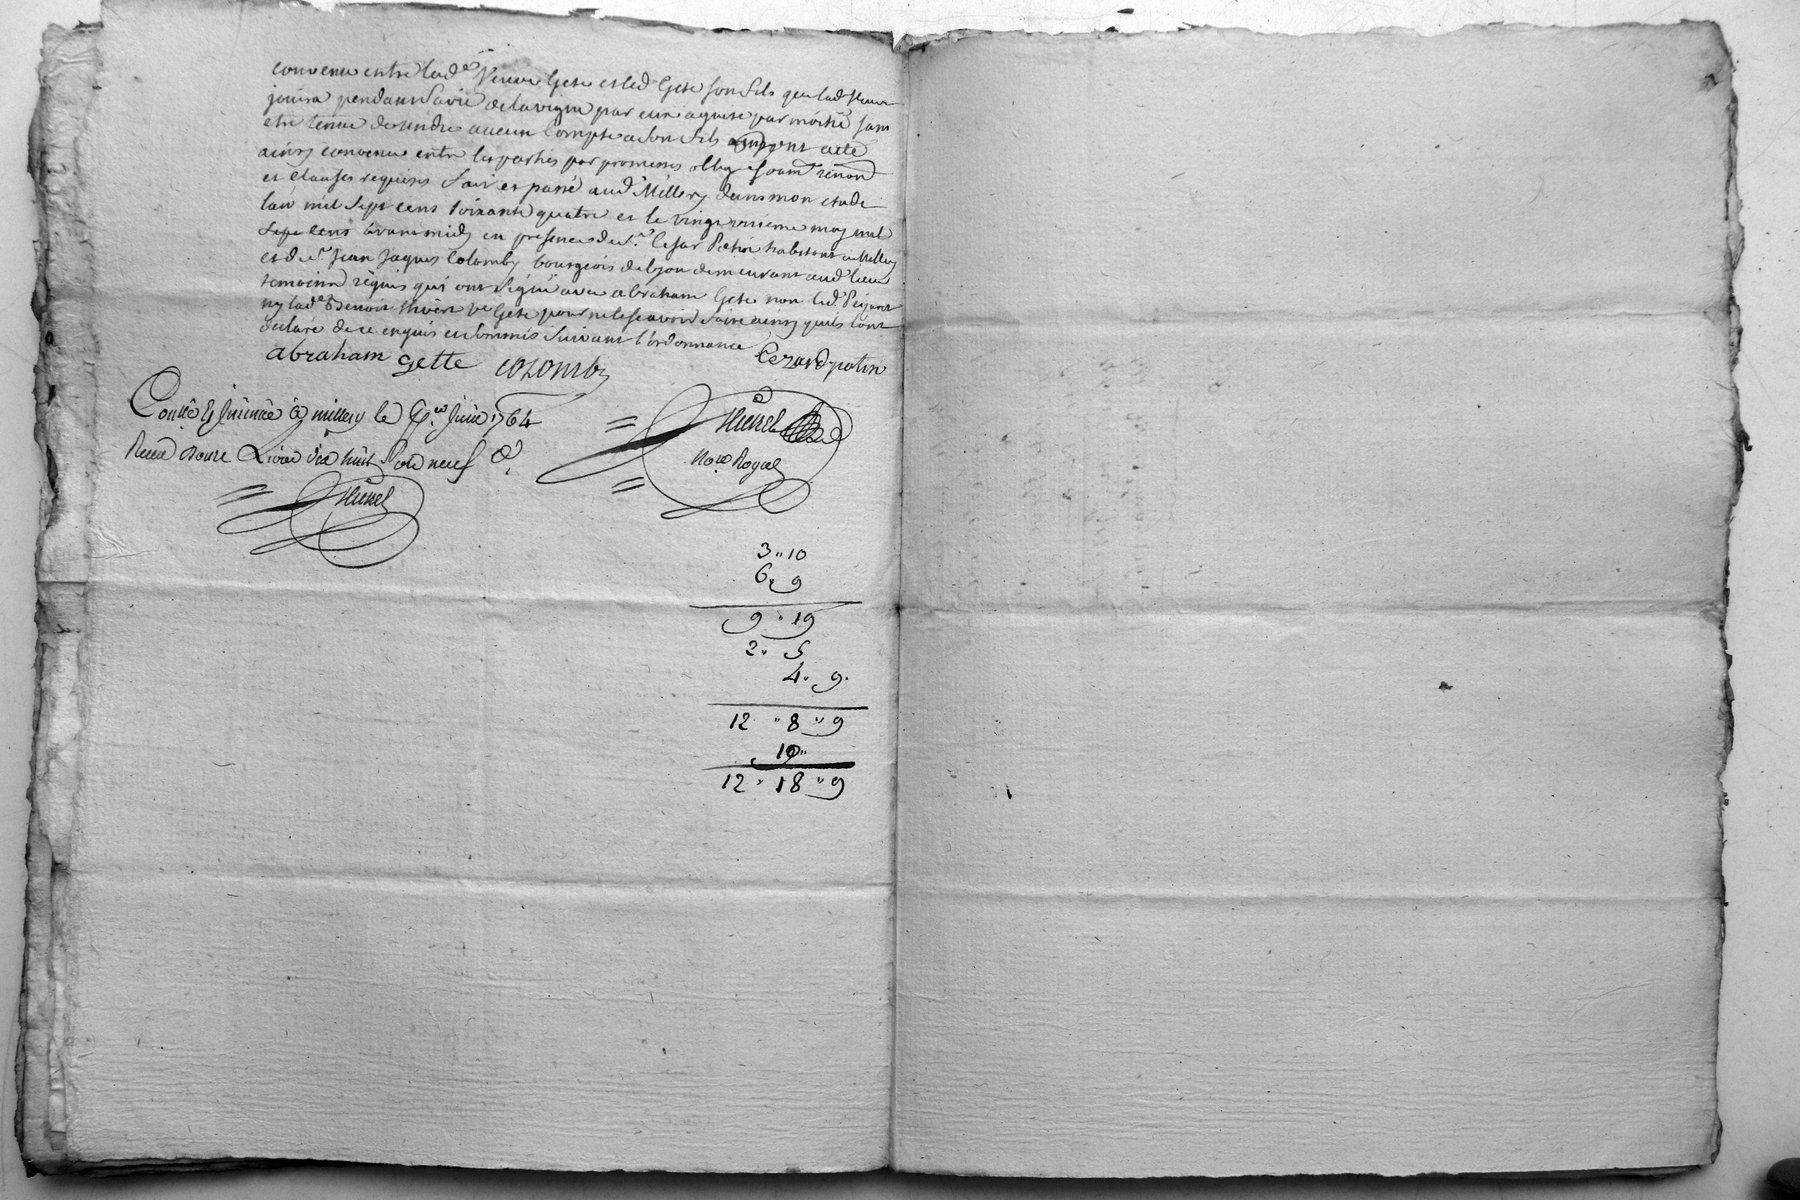 convenu entre lad.e Veuve Gete et led Gete son fils que lad Veuve
jouira pendant sa vie de la vigne par eux aquise par moitié sans
etre tenue de rendre aucun compte a son fils acte
ainsy convenu entre les parties par promesses oblig soum renon
et clauses requises fait et passé aud Millery dans mon etude
lan mil sept cens soixante quatre et le vingt may
sept cens avant midy en presence de S.r Cesar Patin habitant a Millery
et de S.r Jean Jaques Colomby bourgeois de Lyon demeurant aud lieu
temoins requis qui ont signé avec abraham Gete non led.
ny lad.e Benoite ve Gete pour ne le scavoir faire ainsy quils lont
declaré de ce enquis et sommés suivant l'ordonnance
abraham gette colomby Cezard patin
Contlé & Insinué a millery le Juin 1764
Receu Douze Livres dix huit sols neuf d.
No.re Royal
3 " 10
6 " 9
9 " 19
2 " 5
4 " 9
12 " 8 " 9
10 "
12 " 18 " 9